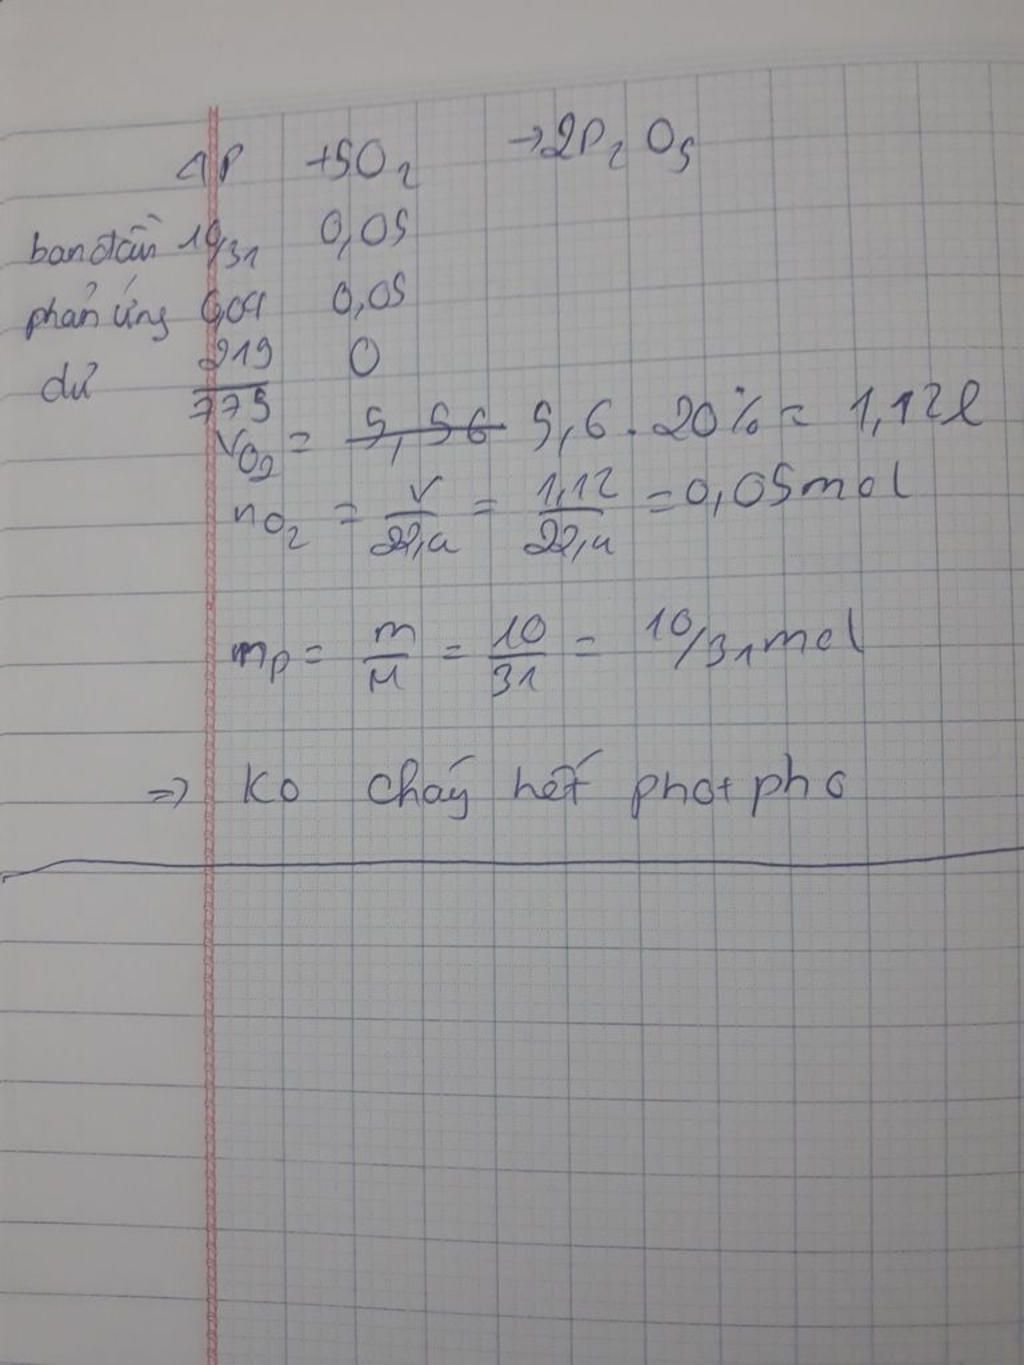 4P +5O2 →2P2O5
ban đầu 10/31 0,05
phản ứng 0,04 0,05
dư 219/775 0
VO2 = 5,56 5,6 . 20% = 1,12l
nO2 = V/22,4 = 1,12/22,4 = 0,05mol
mp = m/M = 10/31 = 10/31 mol
=> Ko cháy hết photpho